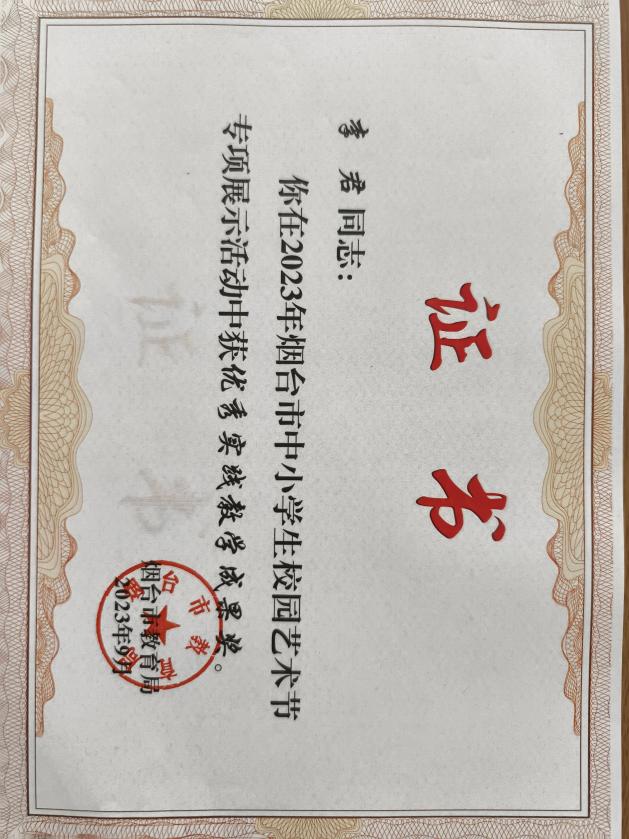 证书
李君同志：
你在2023年烟台市中小学生校园艺术节
专项展示活动中获优秀实践教学成果奖。
烟台市教育局
2023年9月